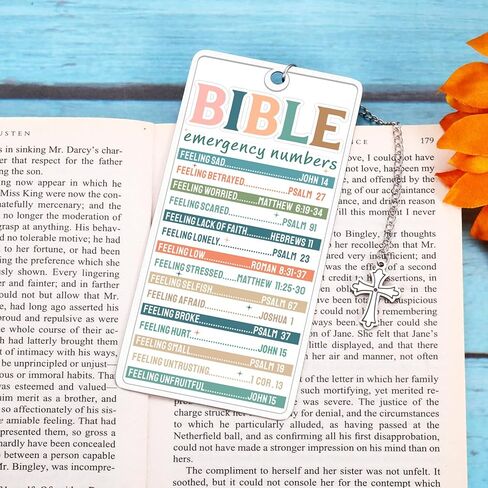 BIBLE
emergency numbers
FEELING SAD..........JOHN 14
FEELING BETRAYED..........PSALM 27
FEELING WORRIED..........MATTHEW 6:19-34
FEELING SCARED..........PSALM 91
FEELING LACK OF FAITH..........HEBREWS 11
FEELING LONELY..........PSALM 23
FEELING LOW..........ROMAN 8:31-37
FEELING STRESSED..........MATTHEW 11:25-30
FEELING SELFISH..........PSALM 67
FEELING AFRAID..........JOSHUA 1
FEELING BROKE..........PSALM 37
FEELING HURT..........JOHN 15
FEELING SMALL..........PSALM 19
FEELING UNTRUSTING..........1 COR. 13
FEELING UNFRUITFUL..........JOHN 15
USTEN
s in sinking Mr. Darcy's char-
er that respect for the father
ng the son.
ing now appear in which he
Miss King were now the con-
atefully mercenary; and the
no longer the moderation of
grasp at anything. His behav-
d no tolerable motive; he had
to her fortune, or had been
ing the preference which she
usly shown. Every lingering
er and fainter; and in farther
could not but allow that Mr.
had long ago asserted his
roud and repulsive as were
e whole course of their ac-
had latterly brought them
t of intimacy with his ways,
be unprincipled or unjust—
ious or immoral habits. That
as esteemed and valued—
im merit as a brother, and
so affectionately of his sis-
e amiable feeling. That had
presented them, so gross a
hardly have been concealed
p between a person capable
Mr. Bingley, was incompre-
179
ve, I could not have
not love, has been my
and offended by the
of our acquaintance
and driven reason
ill this moment I never
to Bingley, her thoughts
her recollection that Mr.
very insufficient; and
was the effect of a second
assertions, in
obliged to
suspicious
could not remembering
She felt that Jane's
little displayed, and that there
air and manner, not often
of the letter in which her family
such mortifying, yet merited re-
The justice of the
charge struck her for denial, and the circumstances
to which he particularly alluded, as having passed at the
Netherfield ball, and as confirming all his first disapprobation,
could not have made a stronger impression on his mind than on
hers.
The compliment to herself and her sister was not unfelt. It
soothed, but it could not console her for the contempt which